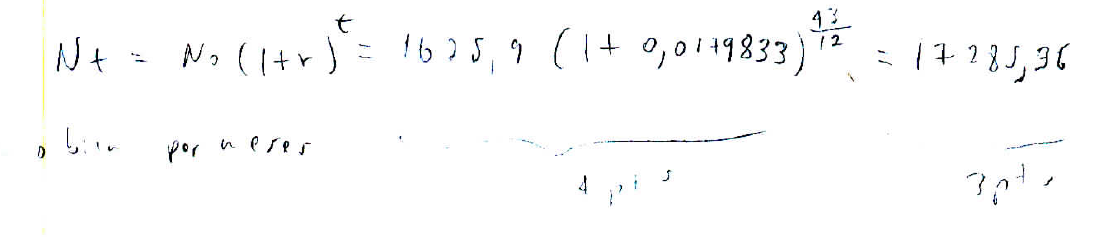 Nt = No (1+r)^t = 1625,9 (1 + 0,0179833)^43/12 = 17285,36
o bien por meses
4 pts 3 pts